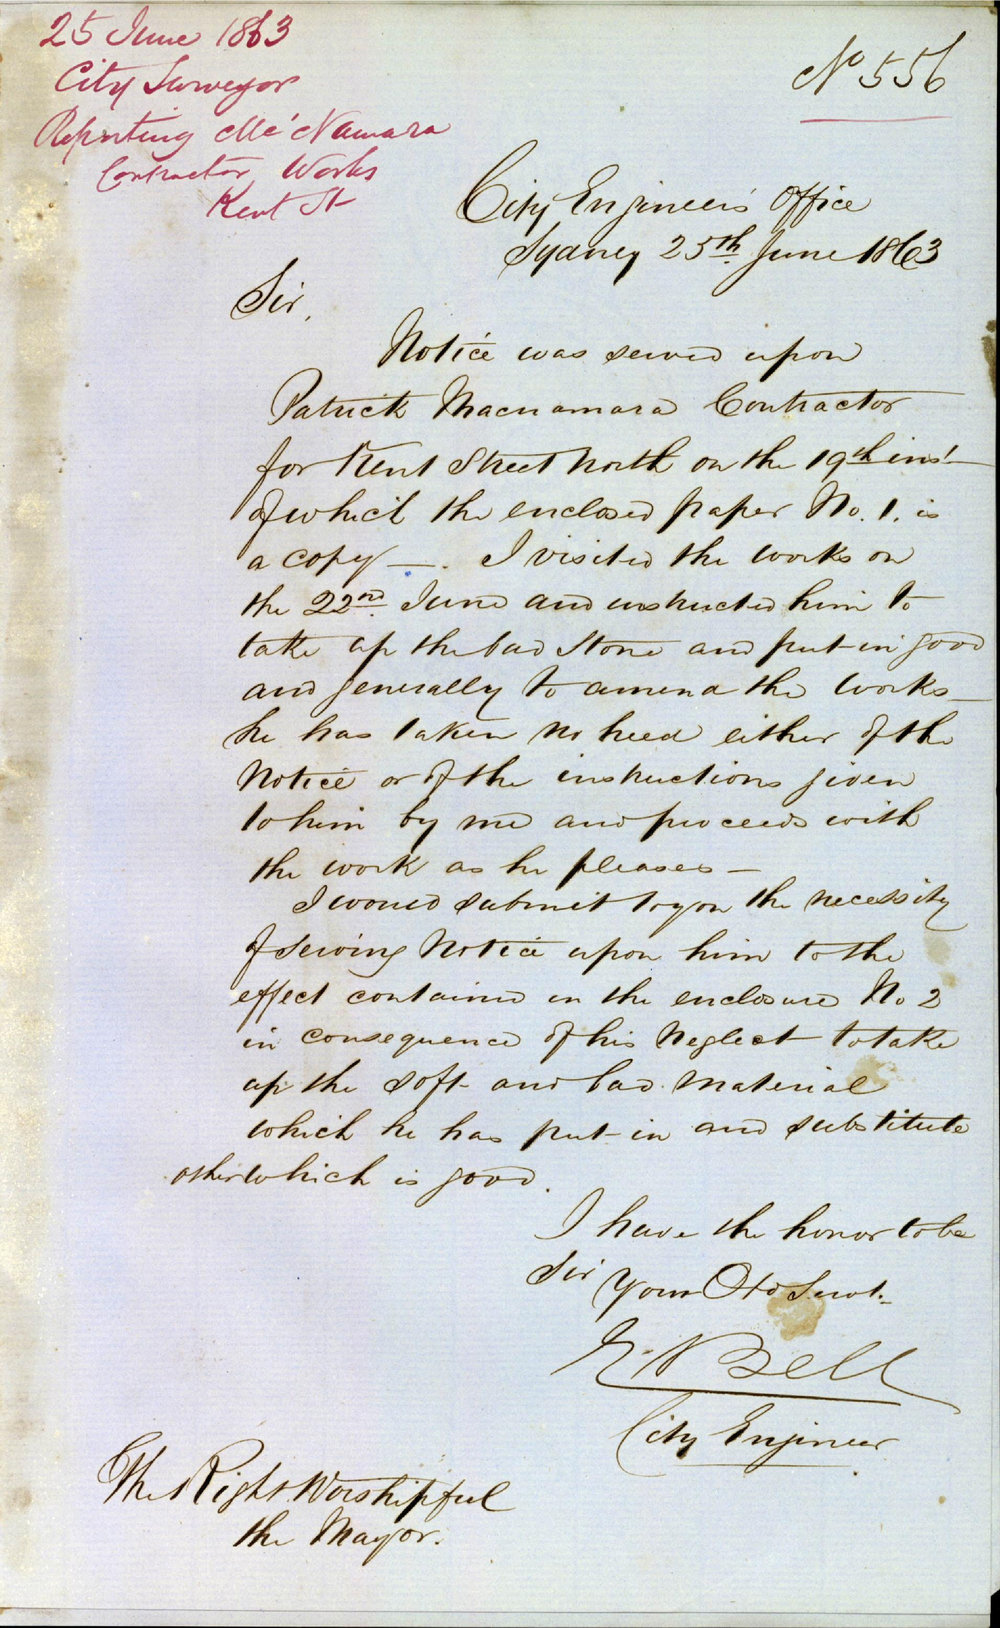 25 June 1863
City Surveyor
Reporting Mc'Namara
Contractor Works
Kent St
No 556
City Engineer's Office
Sydney 25th June 1863
Sir,
Notice was served upon
Patrick Macnamara Contractor
for Kent Street North on the 19th inst
of which the enclosed paper No. 1. is
a copy —. I visited the works on
the 22nd June and instructed him to
take up the bad stone and put in good
and generally to amend the works —
he has taken no heed either of the
Notice or of the instructions given
to him by me and proceeds with
the work as he pleases —
I would submit to you the necessity
of serving Notice upon him to the
effect contained in the enclosure No 2
in consequence of his Neglect to take
up the soft and bad material
which he has put in and substitute
other which is good.
I have the honor to be
Sir
Your Obd Servt.
E. Bell
City Engineer
The Right Worshipful
the Mayor.